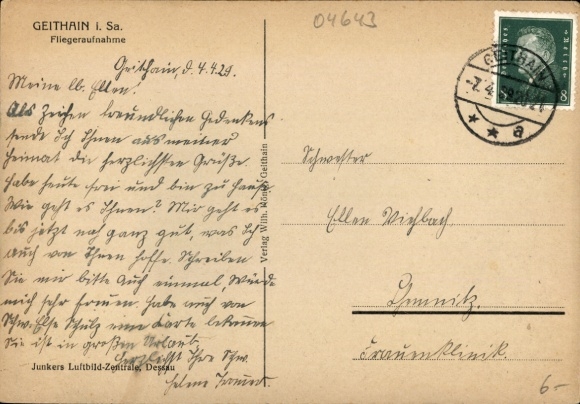 GEITHAIN i. Sa.
Fliegeraufnahme
04643
Geithain, d. 4.4.29.
Meine lb. Ellen!
Als Zeichen freundlichen Gedenkens
sende Ich Ihnen aus meiner
Heimat die herzlichsten Grüße.
Habe heute frei und bin zu Hause
Wie geht es Ihnen? Mir geht es
bis jetzt noch ganz gut, was Ich
auch von Ihnen hoffe. Schreiben
Sie mir bitte auch einmal, Würde
mich sehr freuen. Habe auch von
Schw. Else Schulz eine Karte bekommen
Sie ist in großen Urlaub.
Herzlichst Ihre Schw.
Junkers Luftbild-Zentrale, Dessau
Verlag Wilh. Geithain
Deutsches Reich
8
GEITHAIN
a
Schwester
Ellen Viehbach
Chemnitz.
Frauenklinik.
6-